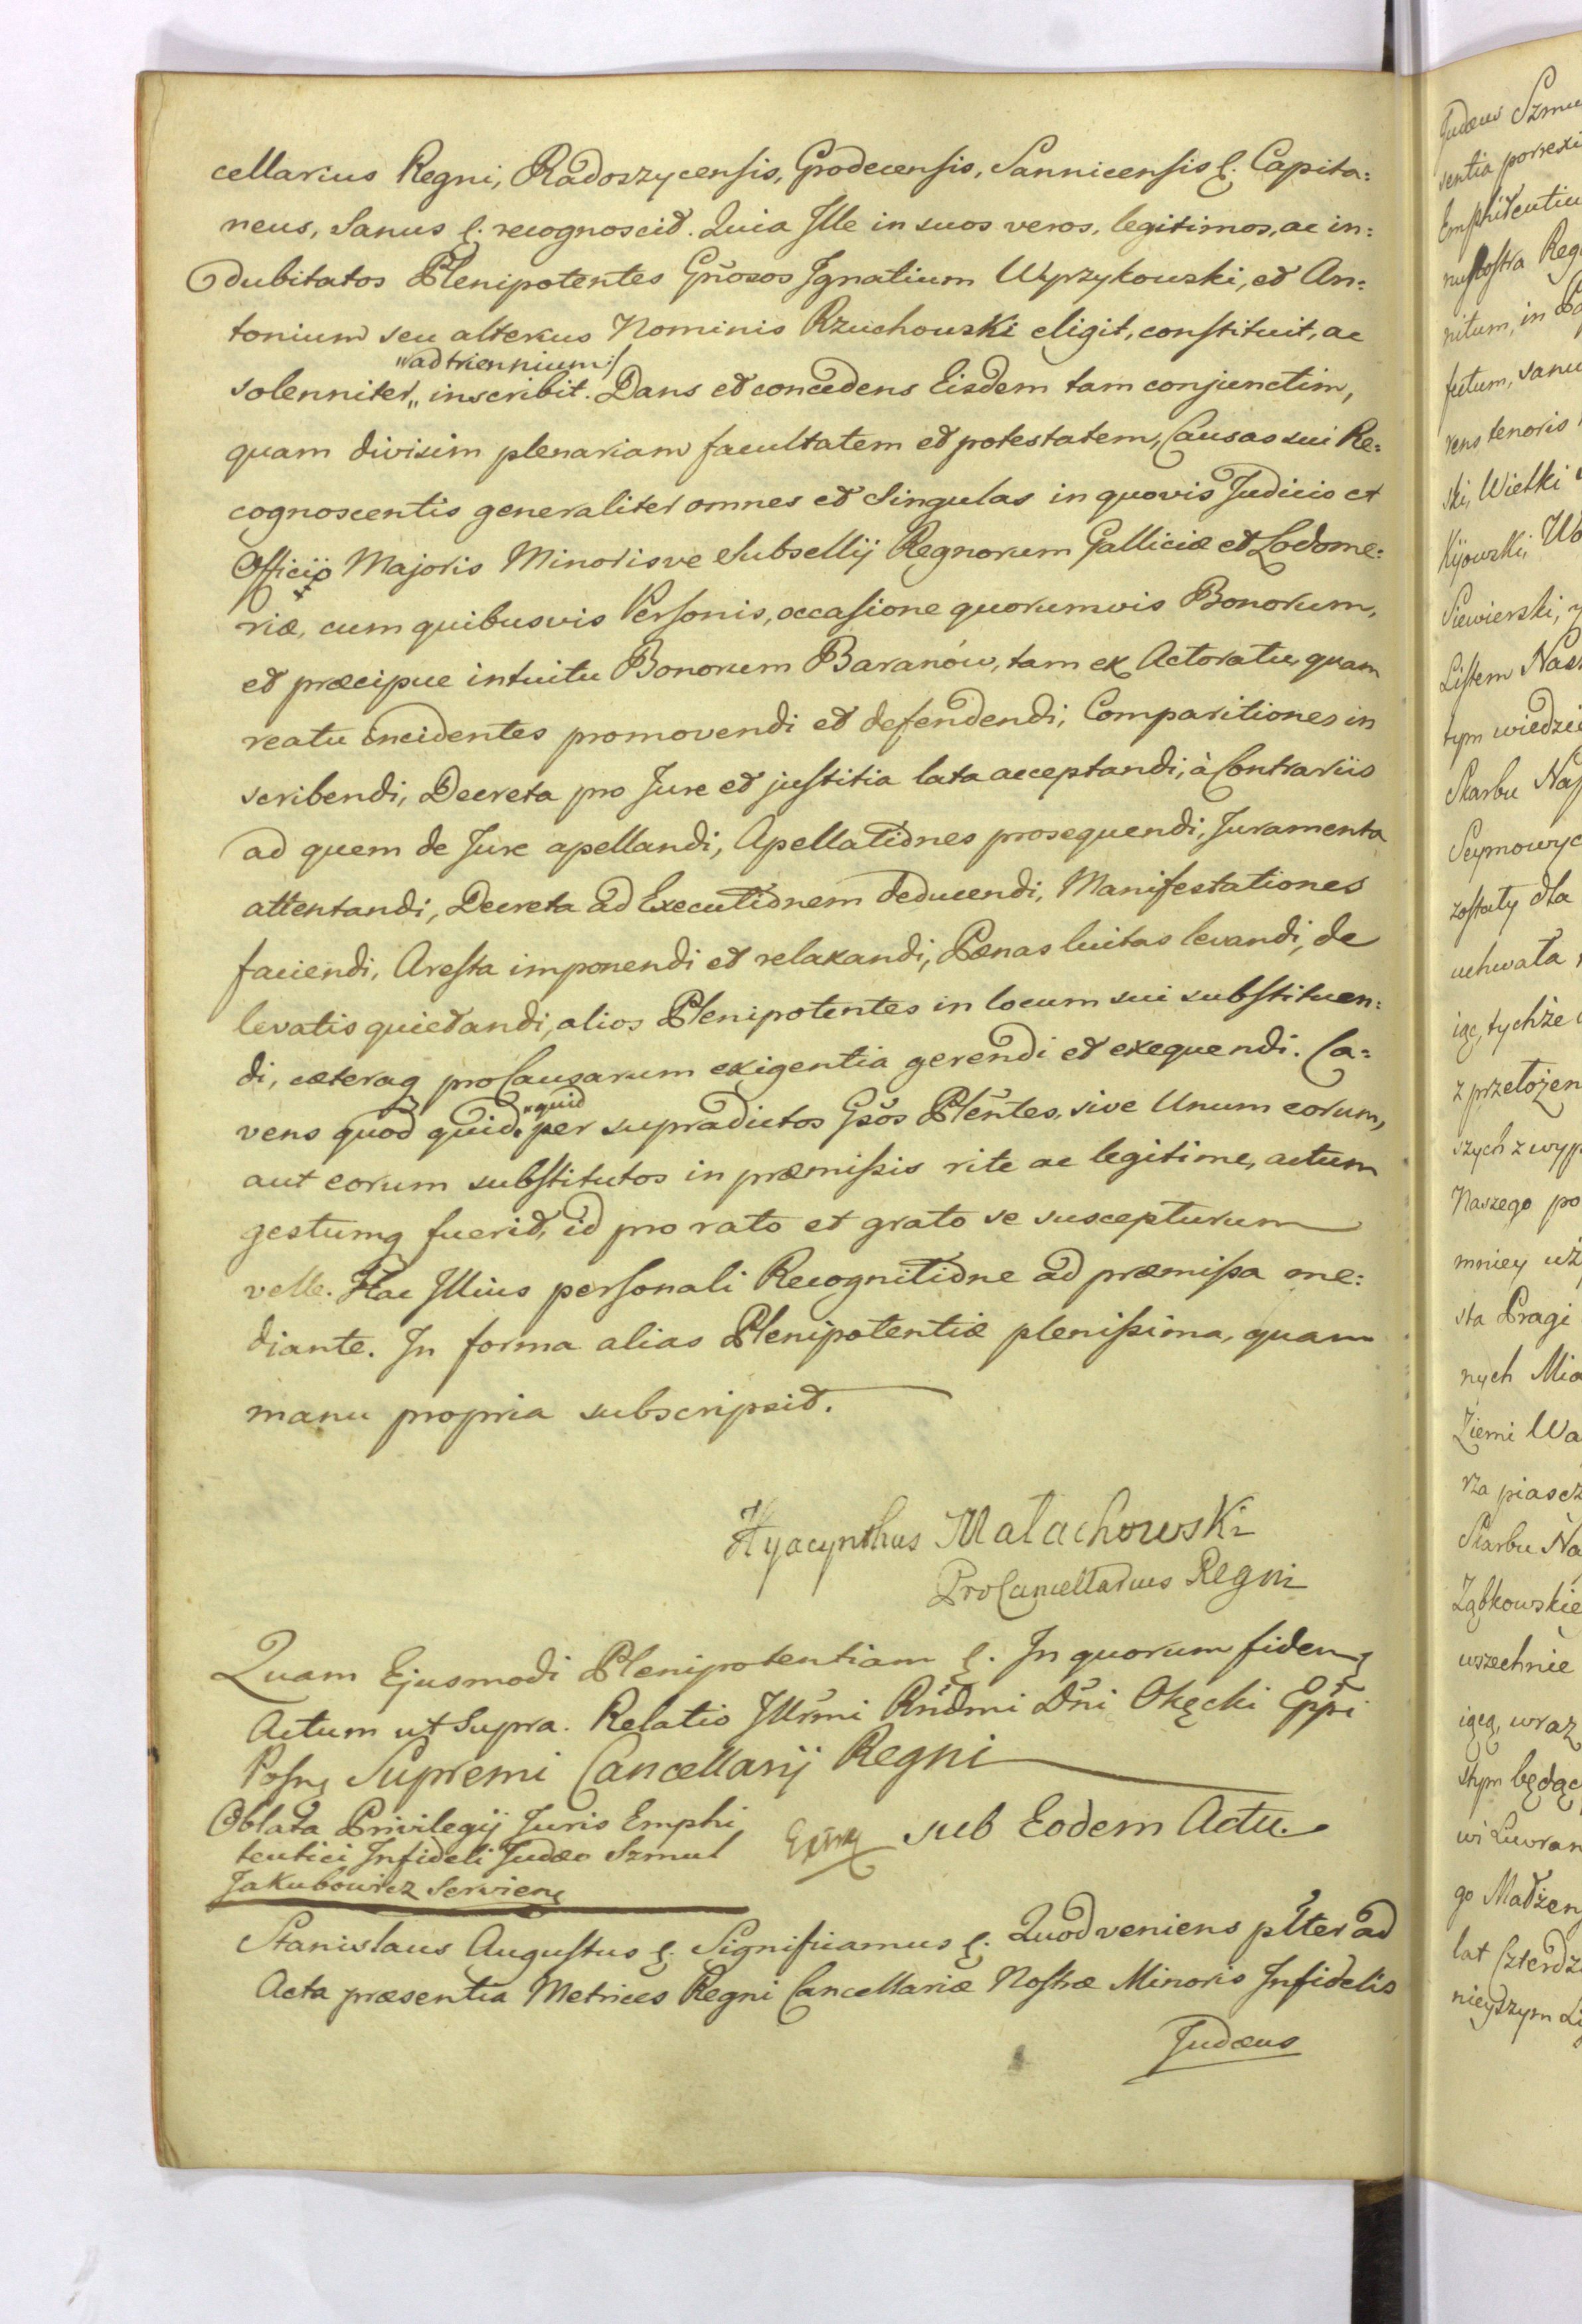 cellarius Regni, Radoszycensis, Grodecensis, Sannicensis &. Capita:
neus, Sanus &. recognoscit. Quia Ille in suos veros, legitimos, ac in:
dubitatos Plenipotentes Gnosos Ignatium Wyrzykowski, et An:
tonium seu alterius Nominis Rzuchowski eligit, constituit, ac
„ad triennium:/
solenniter„ inscribit. Dans et concedens Eisdem tam conjunctim,
quam divisim plenariam facultatem et potestatem, Causas sui Re:
cognoscentis generaliter omnes et Singulas in quovis Judicio et
Officio Majoris Minorisve Subsellij Regnorum Galliciæ et Lodome:
riæ, cum quibusvis Personis, occasione quorumvis Bonorum,
et præcipue intuitu Bonorum Baranów, tam ex Actoratu, quam
reatu incidentes promovendi et defendendi, Comparitiones in
scribendi, Decreta pro Jure et justitia lata acceptandi, à Contrariis
ad quem de Jure apellandi, Apellationes prosequendi, Juramenta
attentandi, Decreta ad Executionem deducendi, Manifestationes
faciendi, Aresta imponendi et relaxandi, Pœnas luitas levandi, de
levatis quietandi, alios Plenipotentes in locum sui substituen:
di, cæteraq pro Causarum exigentia gerendi et exequendi. Ca:
"quid
vens quod quid" per supradictos Gsos Plentes, sive Unum eorum,
aut eorum substitutos in præmissis rite ac legitime, actum
gestumq fuerit, id pro rato et grato se suscepturum
velle. Hac Illius personali Recognitione ad præmissa me:
diante. In forma alias Plenipotentiæ plenissima, quam
manu propria subscripsit.
Hyacynthus Małachowski
ProCancellarius Regni
Quam Ejusmodi Plenipotentiam &. In quorum fidem &
Actum ut Supra. Relatio Illrmi Rndmi Dni Okęcki Eppi
Posn Supremi Cancellarij Regni
Oblata Privilegij Juris Emphi
teutici Infideli Judæo Szmul
Jakubowicz Serviens
sub Eodem Actu.
Stanislaus Augustus &. Significamus &. Quod veniens plter ad
Acta præsentia Metrices Regni Cancellariæ Nostræ Minoris Infidelis
Judæus
Judæus Szmu
sentia porrexi
Emphiteutiu
nu Nostra Reg
nitum, in
sutum, sanu
rens tenoris
ski, Wielki
Kijowski, Wo
Siewierski,
Listem Nas
tym wiedzie
Skarbu Nas
Seymowyc
zostały dla
uchwała
iąc, tychże
z przełożen
szych z wyp
Naszego po
mniey uż
sta Pragi
nych Mia
Ziemi Wa
rza piasc
Skarbu Na
Ząbkowskie
wszechnie
iącą, wraz
stym będąc
wi Luwran
go Małżen
lat Czterdz
nieyszym Li